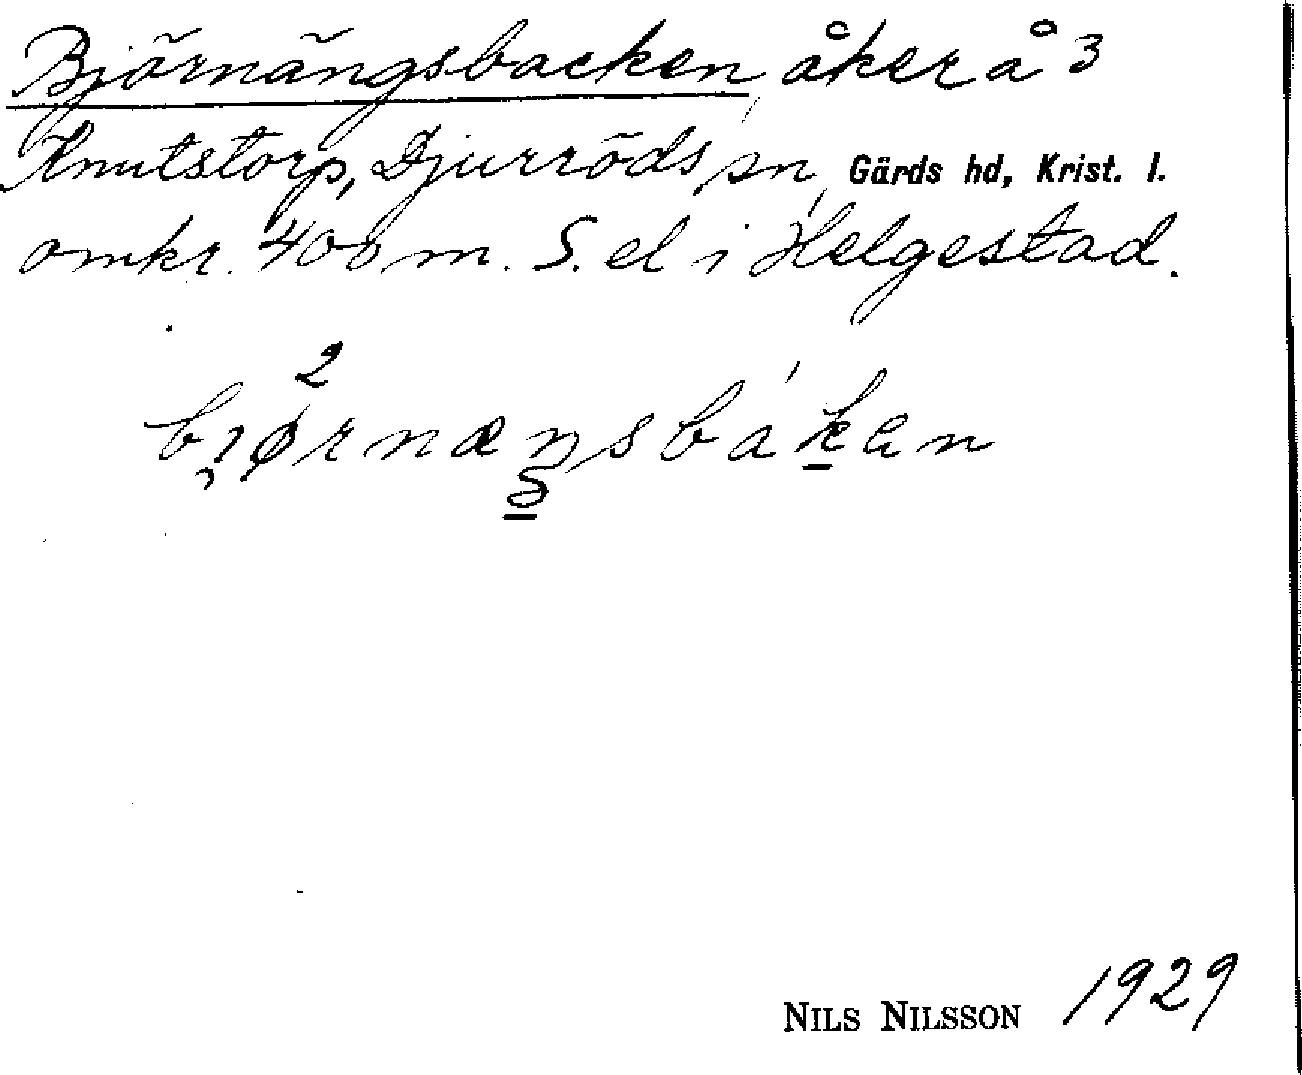 Björnängsbacken, åker å 3
Knutstorp, Djurröds sn, Gärds hd, Krist. l.
omkr. 400 m. S. el i Helgestad.
2
bi̯ørnæŋsbákan
NILS NILSSON 1929